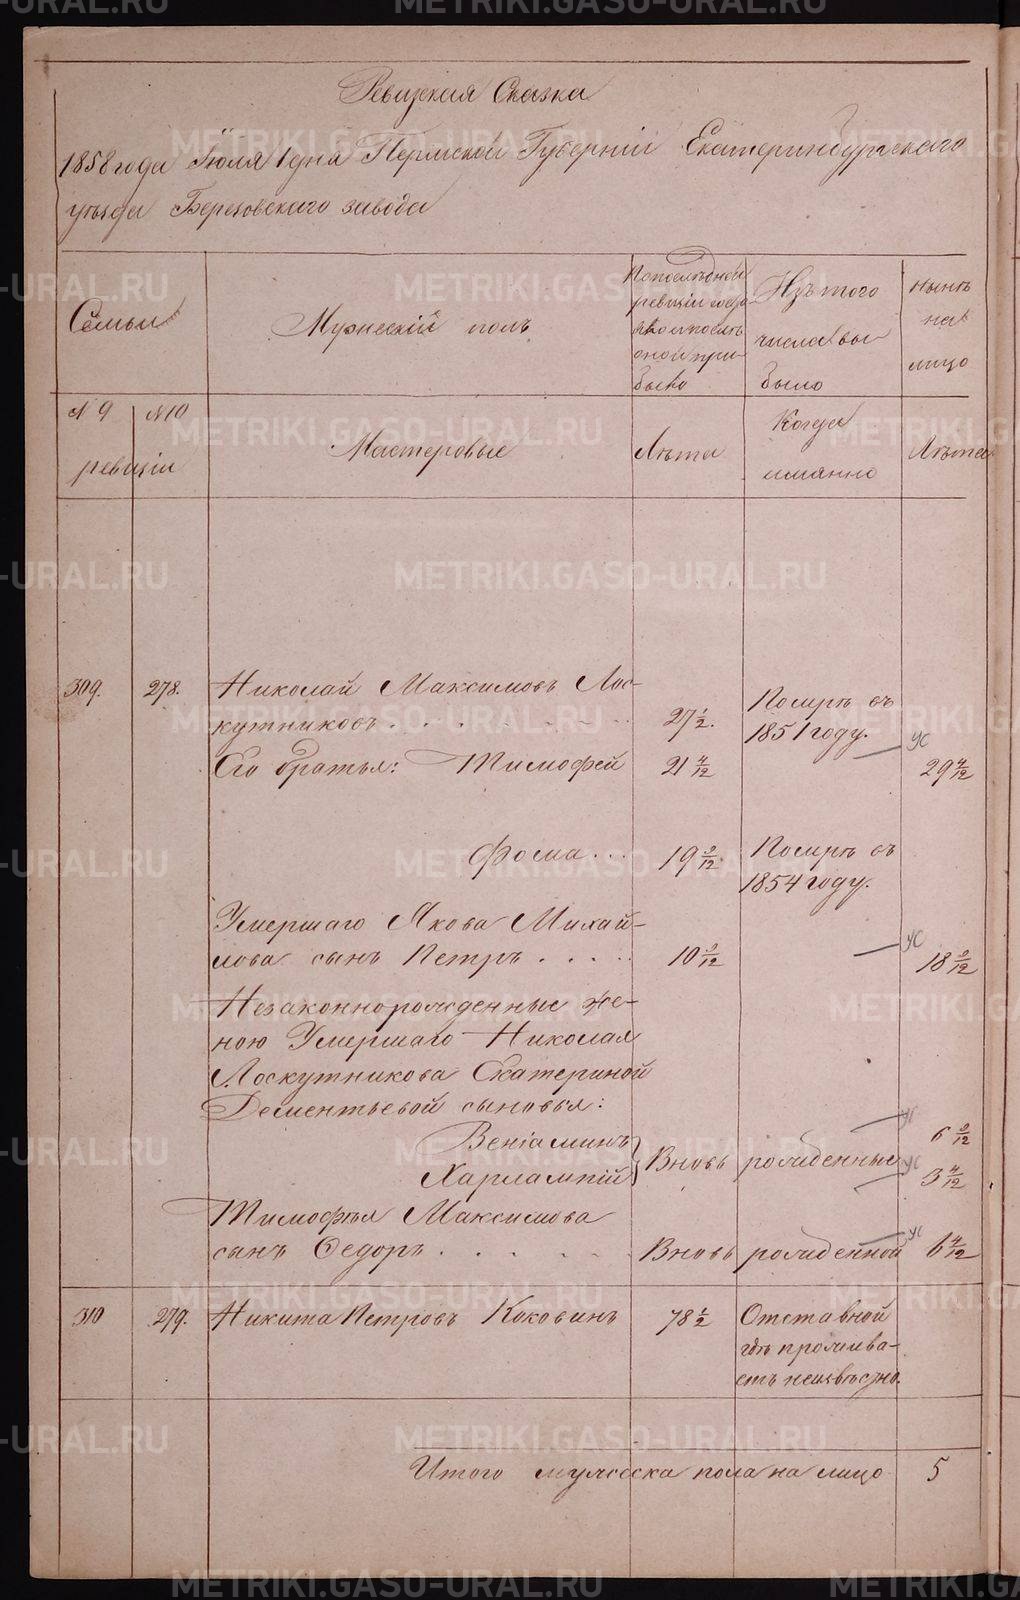 Ревизская Сказка
1858 года Іюля 1 дня Пермской Губерніи Екатеринбургскаго
уѣзда Березовскаго завода
Семьи
Мужескій полъ
По последней
ревизіи состо
яло и послѣ
оной при-
было
Изъ того
числа вы-
было
нынѣ
на
лицо
№ 9 №10
ревизіи
Мастеровые
Лѣта
Когда
имянно
Лѣта
309. 278. Николай Максимовъ Лос-
кутниковъ . . . . . . . 27 1/2. Помре въ
1851 году.
Его братья: Тимофей 21 4/12 УС 29 4/12
Фома . . . 19 9/12. Помре въ
1854 году.
Умершаго Якова Михай-
лова сынъ Петръ . . . . . 10 9/12 УС 18 9/12
Незаконнорожденные же-
ною Умершаго Николая
Лоскутникова Екатериной
Дементьевой сыновья:
Веніаминъ 6 9/12
Харлампій Вновь рожденные УС 3 4/12
Тимофея Максимова
сынъ Федоръ . . . . . . Вновь рожденной УС 6 4/12
310 279. Никита Петровъ Коковинъ 78 1/2 Отставной
гдѣ прожива-
етъ неизвѣстно.
Итого мужеска пола на лицо 5
METRIKI.GASO-URAL.RU